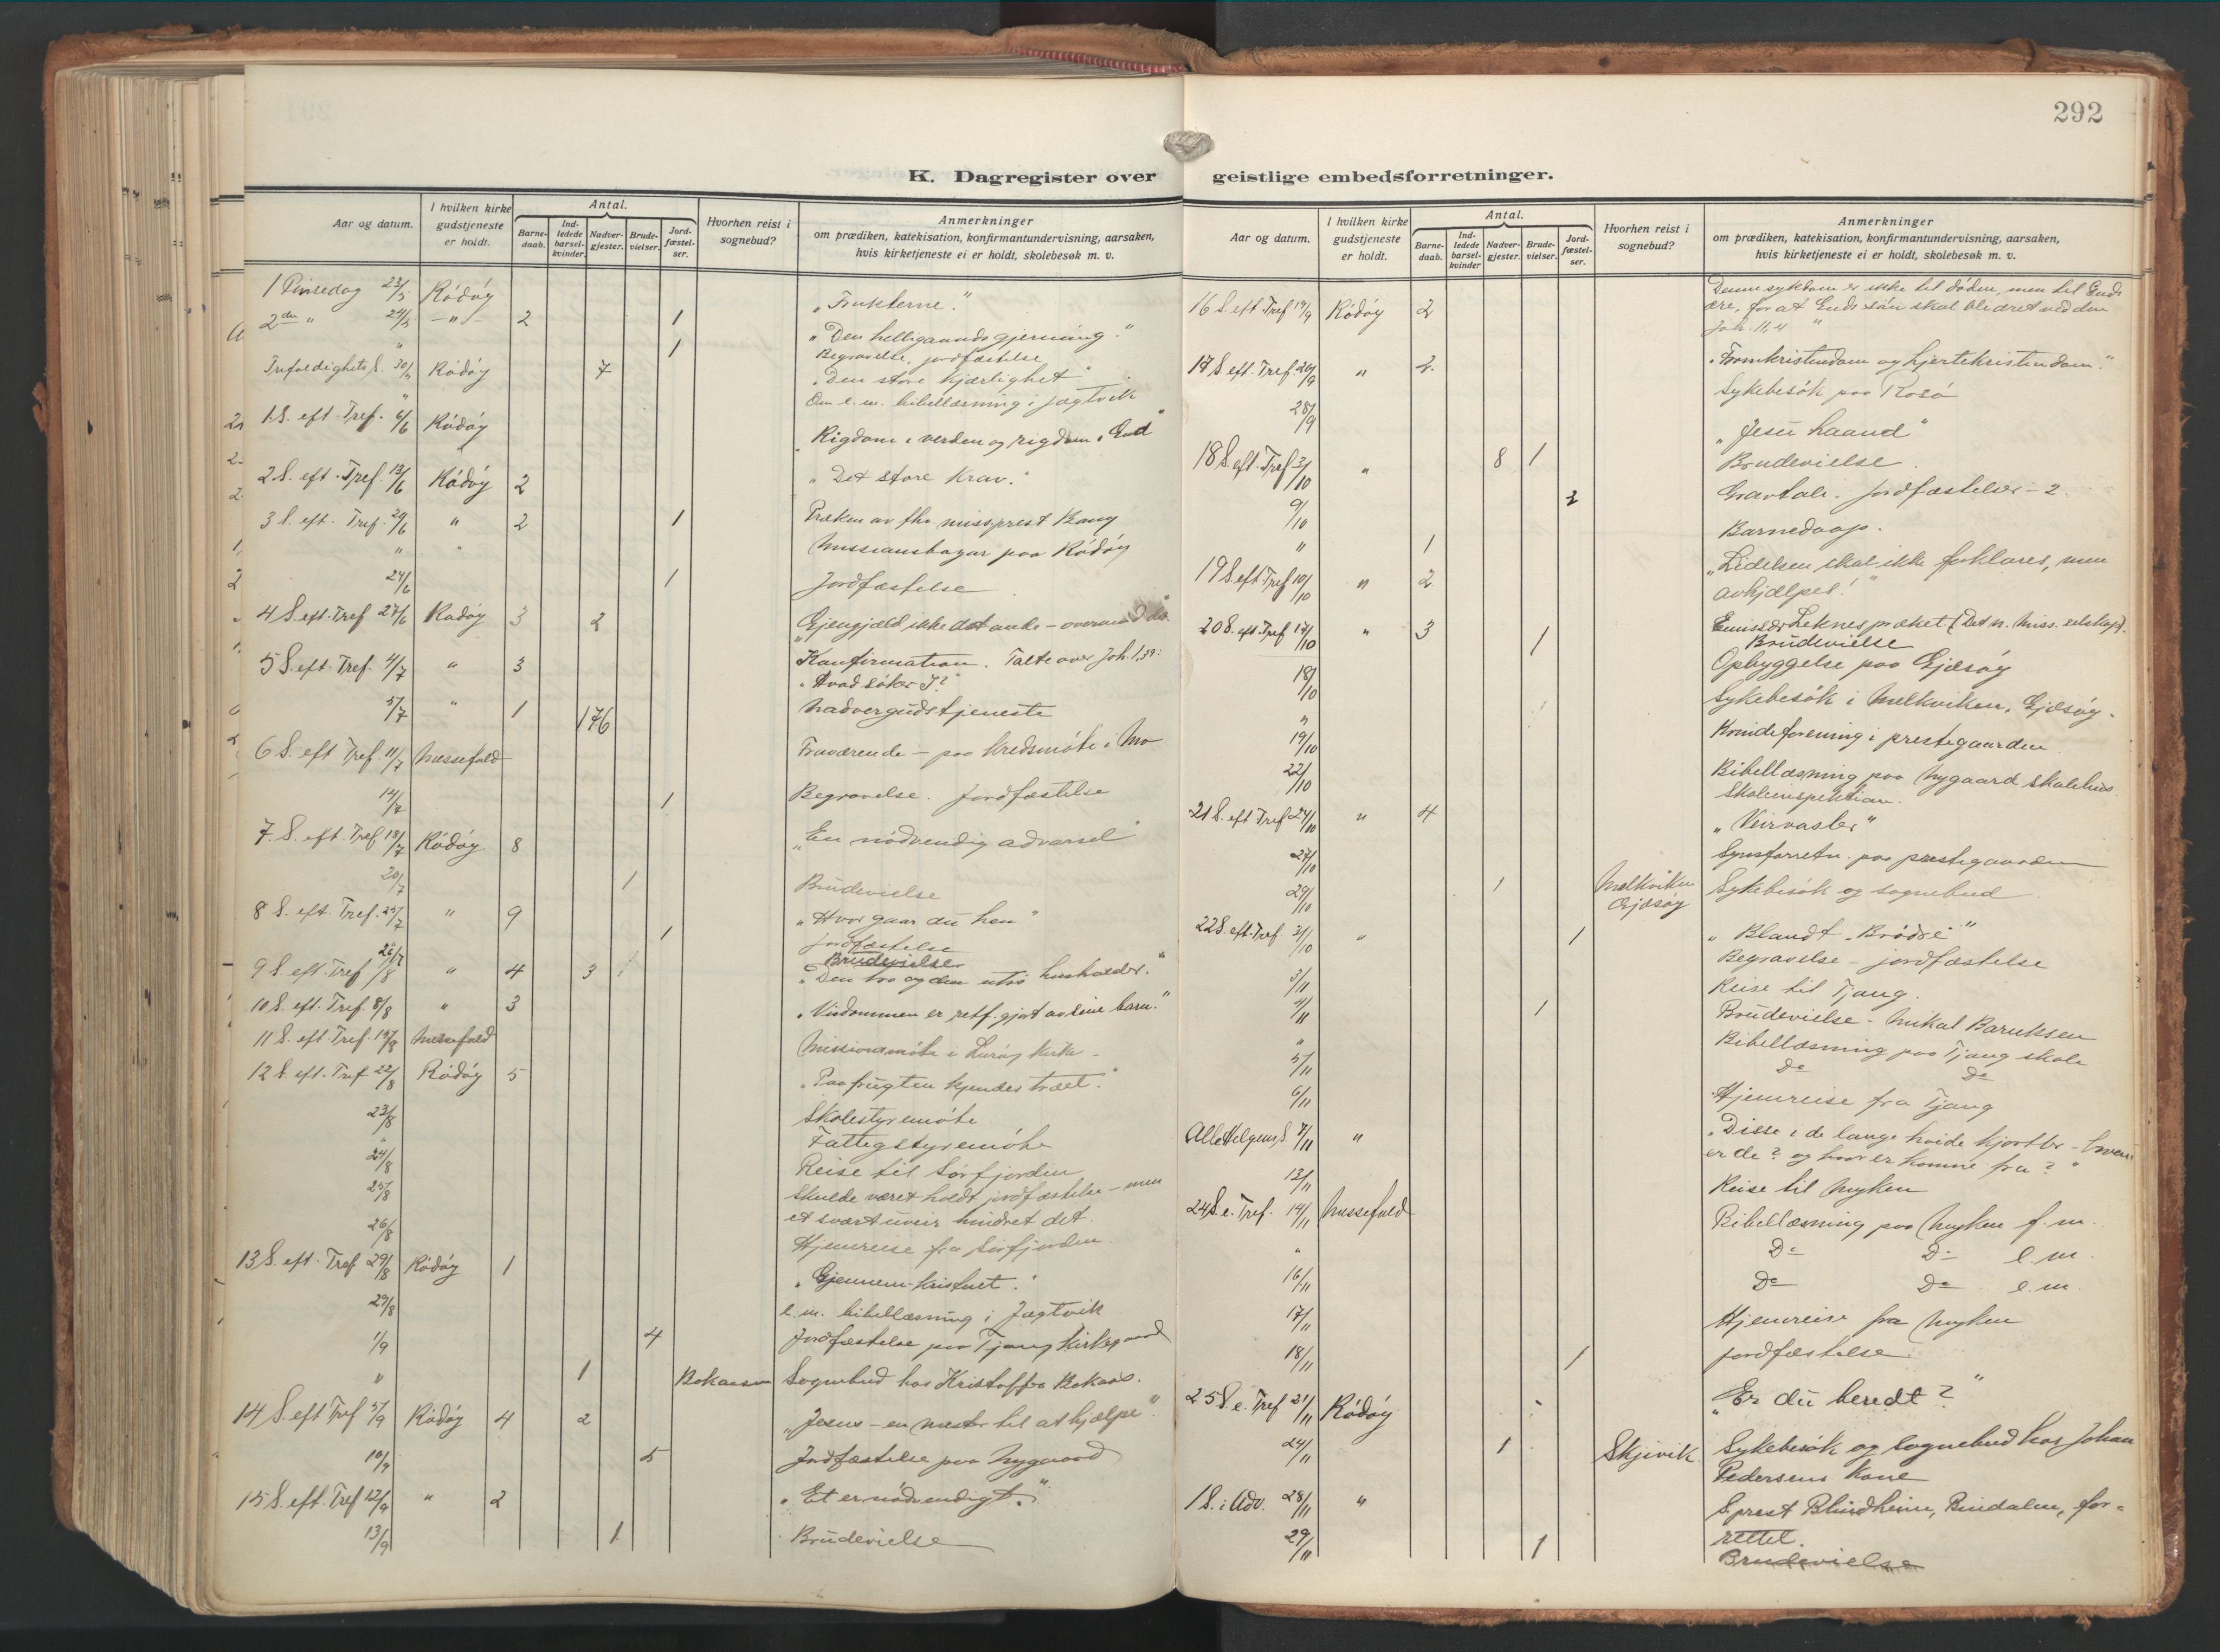 292
K. Dagregister over geistlige embedsforretninger.
Aar og datum. I hvilken kirke gudstjeneste er holdt. Antal. Barnedaab. Indledede barselkvinder. Nadvergjester. Brudevielser. Jordfæstelser. Hvorhen reist i sognebud? Anmerkninger om prædiken, katekisation, konfirmantundervisning, aarsaken, hvis kirketjeneste ei er holdt, skolebesøk m. v.
1 Pinsedag 23/5 Rödöy „Frukterne.“
2den " 24/5 -"- 2 1 „Den helligaands gjerning.“
" 1 Begravelse, jordfæstelse
Trefoldighets S. 30/5 Rödöy 7 „Den store kjærlighet“
" Om e.m. bibellæsning i Jægtvik
1 S. eft. Tref. 6/6 Rödöy „Rigdom i verden og rigdom i Gud“
2 S. eft. Tref. 13/6 Rödöy 2 „Det store krav.“
3 S. eft. Tref. 20/6 " 2 1 Præken av fhv. missprest Bang
" " Missionsbazar paa Rödöy
24/6 1 Jordfæstelse
4 S. eft. Tref 27/6 Rödöy 3 2 „Gjengjæld ikke det onde – overvind det
5 S. eft. Tref. 4/7 " 3 Konfirmation. Talte over Joh. 1,39:
„Hvad söker I?“
5/7 " 1 176 Nadvergudstjeneste
6 S. eft Tref. 11/7 Messefald Fraværende – paa kredsmöte i Mo
14/7 1 Begravelse. Jordfæstelse
7 S. eft. Tref 18/7 Rödöy 8 „En nödvendig advarsel“
20/7 1 Brudevielse
8 S. eft. Tref. 25/7 " 9 „Hvor gaar du hen“
" 1 Jordfæstelse
26/7 1 Brudevielse
9 S. eft. Tref 1/8 " 4 3 „Den tro og den utro husholder.“
10 S. eft. Tref. 8/8 " 3 „Visdommen er retf. gjort av sine barn.“
11 S. eft. Tref. 15/8 Messefald Missionsmöte i Luröy kirke –
12 S. eft. Tref 22/8 Rödöy 5 „Paa frugten kjendes træet.“
23/8 Skolestyremöte
" Fattigstyremöte
24/8 Reise til Sörfjorden
25/8 Skulde været holdt jordfæstelse – men
et svært uveir hindret det.
26/8 Hjemreise fra Sörfjorden
13 S. eft. Tref 29/8 Rödöy 1 „Gjennem Kristuet.“
29/8 e.m. bibellæsning i Jægtvik
1/9 4 Jordfæstelse paa Tjong kirkegaard
" 1 Sognebud hos Kristoffer Bokaas.
14 S. eft Tref 5/9 Rödöy 4 2 „Jesus – en mester til at hjælpe“.
10/9 5 Jordfæstelse paa Nygaard
15 S. eft Tref 12/9 " 2 „Et er nödvendigt.“
13/9 1 Brudevielse
Aar og datum. I hvilken kirke gudstjeneste er holdt. Antal. Barnedaab. Indledede barselkvinder Nadvergjester. Brudevielser. Jordfæstelser. Hvorhen reist i sognebud? Anmerkninger om prædiken, katekisation, konfirmantundervisning, aarsaken, hvis kirketjeneste ei er holdt, skolebesøk m. v.
Denne sykdom er ikke til döden, men til Guds
16 S. eft Tref Rödöy 2 ære, for at Guds sön skal bli æret ved den
Joh. 11,4 "
17 S. eft. Tref " 2 „Formkristendom og hjertekristendom.“
28/9 Sykebesök paa Rosö
18 S. eft. Tref 3/10 " 8 1 „Jesu haand“
Brudevielse
9/10 2 Gravtale. Jordfæstelser – 2.
" 1 Barnedaap.
19 S eft Tref 10/10 " 2 „Lidelsen skal ikke forklares, men
avhjælpes!“
20 S. eft. Tref 17/10 " 3 1 Emissær Leknes præket (Det n. Miss. selskap).
Brudevielse
Opbyggelse paa Gjesöy
18/10 Sykebesök i Melkviken, Gjesöy.
19/10 Kvindeforening i prestegaarden
22/10 Bibellæsning paa Nygaard skolehus.
Skoleinspektion.
21 S. eft Tref 24/10 " 4 „Veirvarsler“
27/10 Synsforretn. paa prestegaarden
29/10 1 Melkviken Gjesöy Sykebesök og sognebud
22 S. eft. Tref 31/10 " 1 „Blandt Brödre“
Begravelse – jordfæstelse
3/11 Reise til Tjong.
4/11 1 Brudevielse – Mikal Baruksen
" Bibellæsning paa Tjong skole
5/11 Do Do
6/11 Hjemreise fra Tjong
Alle Helgens S. 7/11 " „Disse i de lange hvide kjortler – hvem
er de? og hvor er komne fra?“
13/11 Reise til Myken
24 S. e. Tref. 14/11 Messefald Bibellæsning paa Myken f.m.
" Do Do e.m.
16/11 Do Do e.m.
17/11 Hjemreise fra Myken
18/11 1 Jordfæstelse
25 S. e. Tref 21/11 Rödöy „Er du beredt?“
24/11 1 Skjivik Sykebesök og sognebud hos Johan
Pedersens kone
1 S. i Adv. 28/11 " S. prest Blindheim, Bindalen, for=
rettet.
29/11 1 Brudevielse